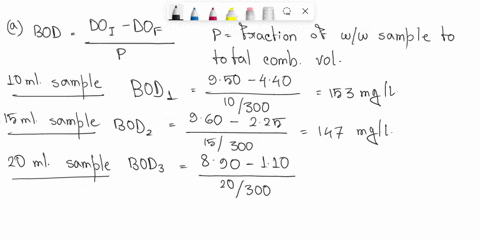 (a) BOD = DO_I - DO_F / P
P = fraction of w/w sample to total comb. vol.
10 ml. sample BOD_1 = 9.50 - 4.40 / 10/300 = 153 mg/l
15 ml. sample BOD_2 = 9.60 - 2.25 / 15/300 = 147 mg/l.
20 ml. sample BOD_3 = 8.90 - 1.10 / 20/300